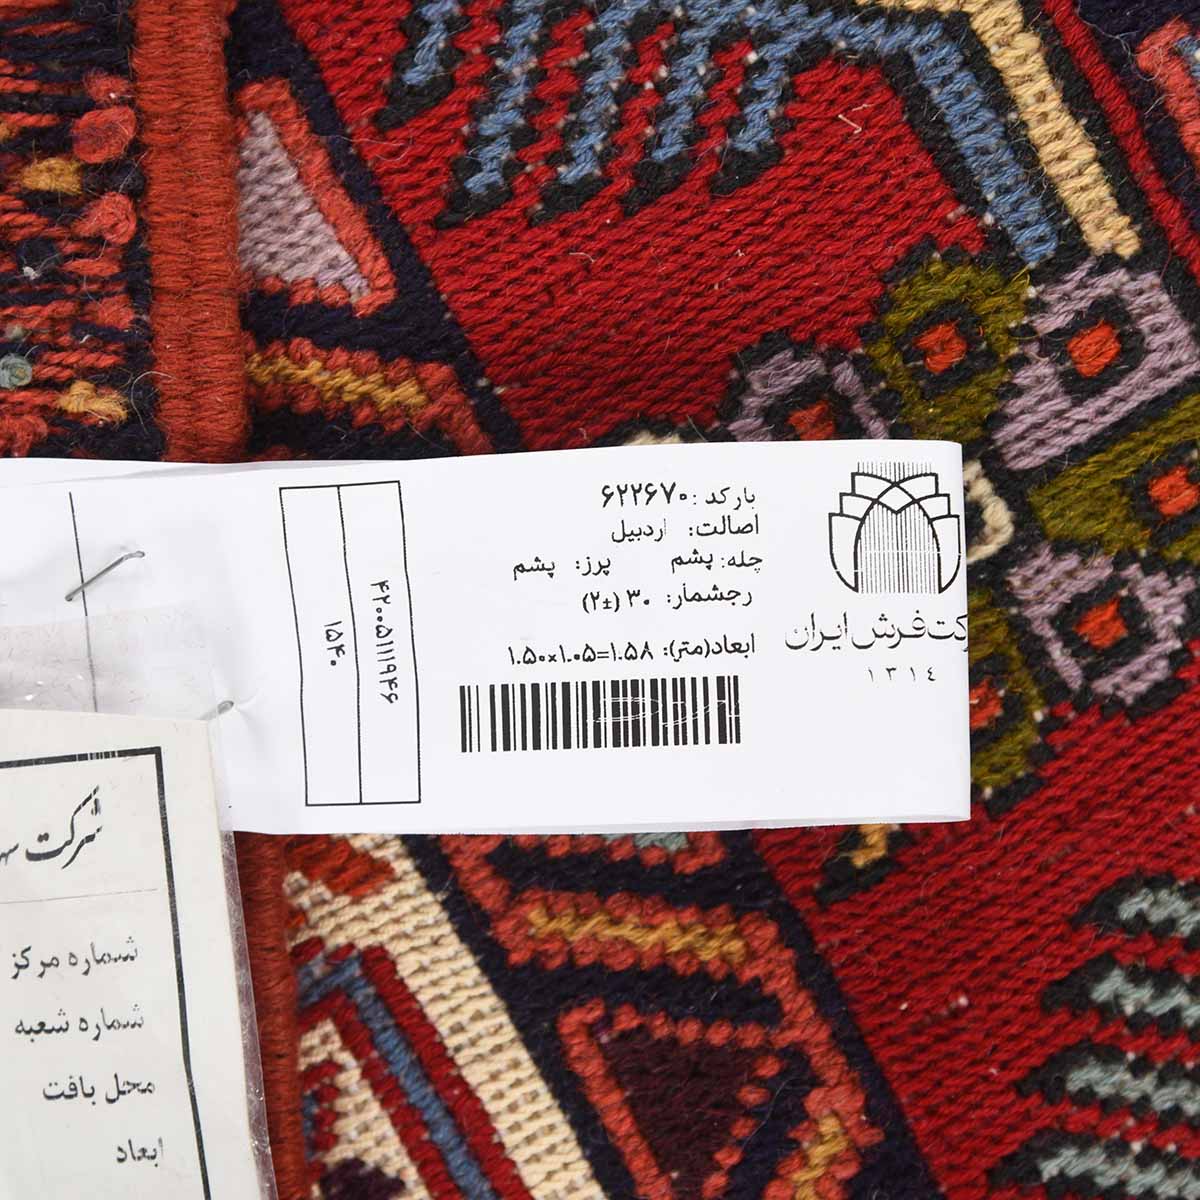 بارکد : ۶۲۲۶۷۰
اصالت: اردبیل
چله: پشم پرز: پشم
رجشمار: ۳۰ (±۲)
ابعاد(متر): ۱.۵۰×۱.۰۵=۱.۵۸
۴۲۰۰۵۱۱۱۹۴۶
۱۵۴۰
فرش ایران
۱۳۱٤
شرکت
شماره مرکز
شماره شعبه
محل بافت
ابعاد